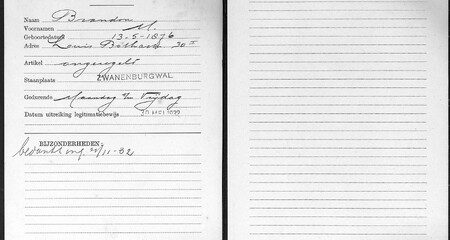 Naam Brandon
Voornamen M.
Geboortedatum 13-5-1876
Adres Louis Bothast. 30
Artikel ongeregeld
Staanplaats ZWANENBURGWAL
Gedurende Maandag t/m Vrijdag
Datum uitreiking legitimatiebewijs 30 MEI
BIJZONDERHEDEN:
11-32